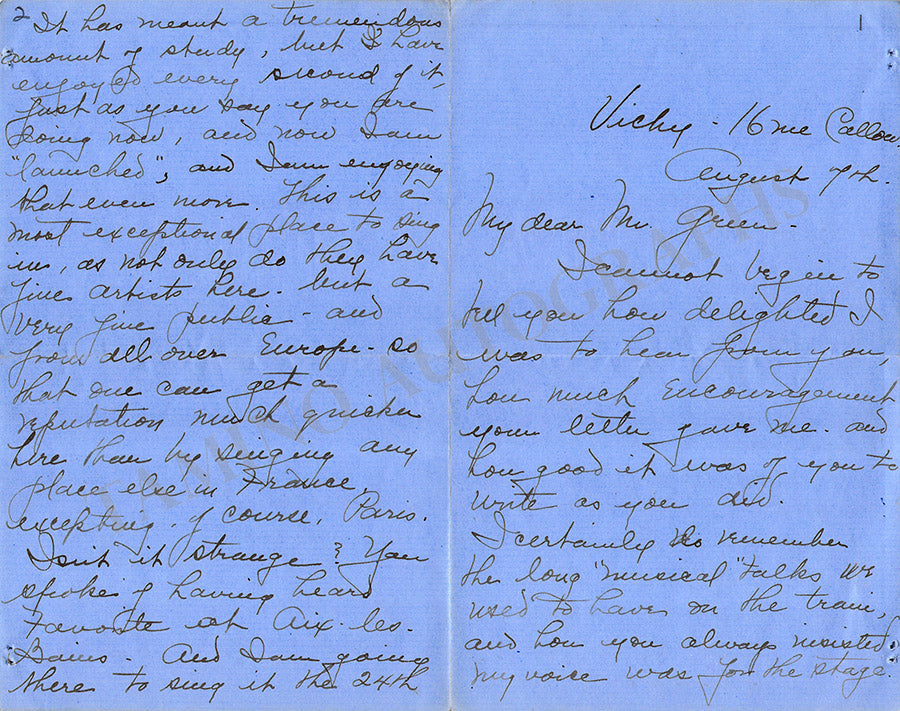 1
Vichy - 16 me Callou
August 7th.
My dear Mr. Green -
I cannot begin to
tell you how delighted I
was to hear from you,
how much encouragement
your letter gave me - and
how good it was of you to
write as you did.
I certainly do remember
the long "musical" talks we
used to have on the train,
and how you always insisted
my voice was for the stage.
2
It has meant a tremendous
amount of study, but I have
enjoyed every second of it,
just as you say you are
doing now, and now I am
"launched", and I am enjoying
that even more. This is a
most exceptional place to sing
in, as not only do they have
fine artists here - but a
very fine public - and
from all over Europe - so
that one can get a
reputation much quicker
here than by singing any
place else in France,
excepting, of course, Paris.
Isn't it strange? You
spoke of having heard
Favorite at Aix-les-
Bains - And I am going
there to sing it the 24th
TAMINO AUTOGRAPHS